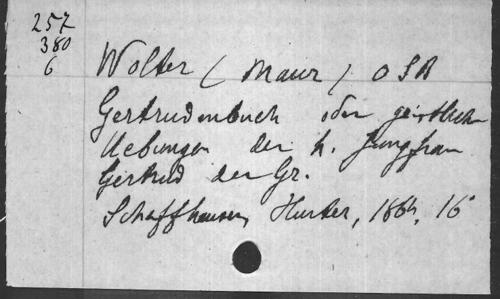 257
380
6
Wolter (Maur) OSB
Gertrudenbuch oder geistliche
Uebungen der h. Jungfrau
Gertrud der Gr.
Schaffhausen, Hurter, 1864, 16°